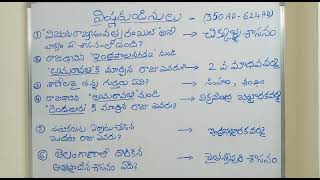 విష్ణుకుండినులు - (350 AD - 624 AD)
① "విజయరాజ్యసంవత్సరంబుల్" అనే వాక్యం ఏ శాసనంలోఉంది? → చిక్కుళ్ళ శాసనం
② రాజధానిని 'ఇంద్రపాలనగరం' నుండి 'అమరావతి' కి మార్చిన రాజు ఎవరు? → 2 వ మాధవవర్మ
③ నాణేలపై ఉన్న గుర్తులు ఏవి? → సింహం, శంఖం
④ రాజధానిని 'అమరావతి' నుండి 'దెందులూరు' కి మార్చిన రాజు ఎవరు? → విక్రమేంద్ర భట్టారకవర్మ
⑤ ఘటికలను ఏర్పాటు చేసిన మొదటి రాజు ఎవరు? → ఇంద్రభట్టారకవర్మ
⑥ తెలంగాణాలో దొరికిన అతిప్రాచీన శాసనం ఏది? → చైతన్యపురి శాసనం